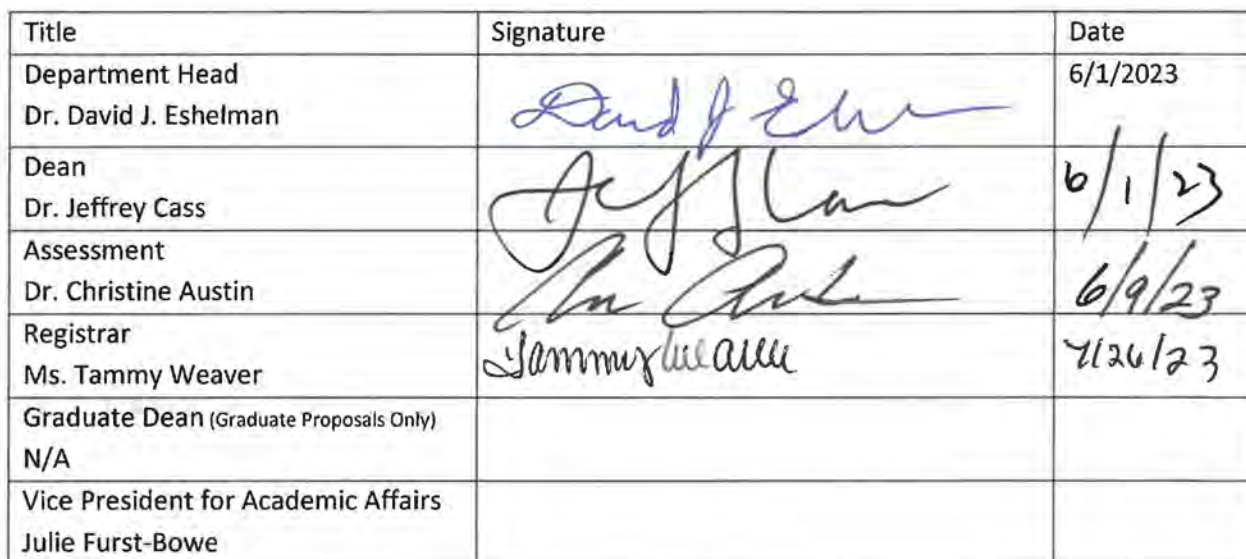 Title Signature Date
Department Head 6/1/2023
Dr. David J. Eshelman David J Eshelman
Dean
Dr. Jeffrey Cass 6/1/23
Assessment
Dr. Christine Austin 6/9/23
Registrar
Ms. Tammy Weaver Tammy Weaver 7/26/23
Graduate Dean (Graduate Proposals Only)
N/A
Vice President for Academic Affairs
Julie Furst-Bowe